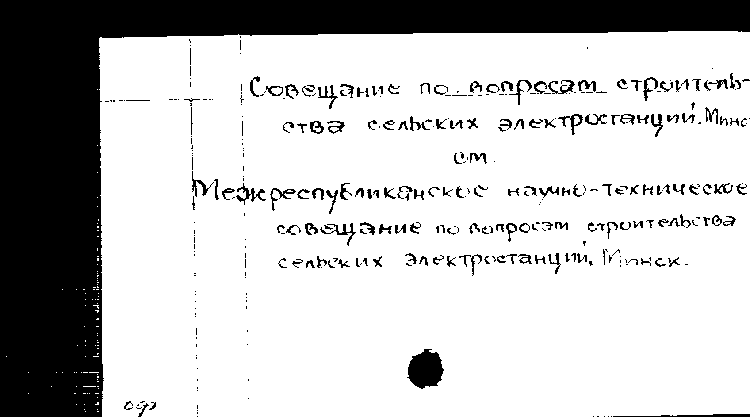 Совещание по вопросам строитель-
ства сельских электростанций. Минс
см.
Межреспубликанское научно-техническое
совещание по вопросам строительства
сельских электростанций, Минск.